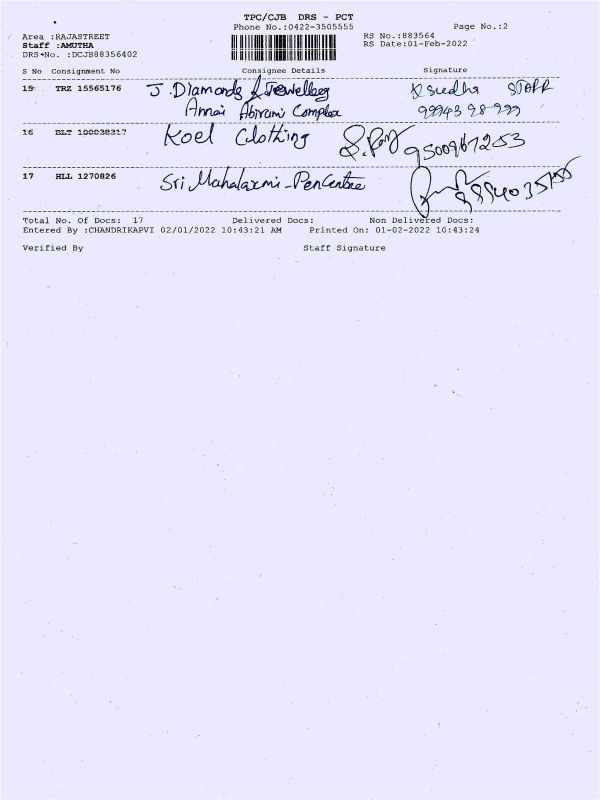 TPC/CJB DRS - PCT
Phone No.:0422-3505555 Page No.:2
Area :RAJASTREET RS No.:883564
Staff :AMUTHA RS Date:01-Feb-2022
DRS No. :DCJB88356402
S No Consignment No Consignee Details Signature
15 TRZ 15565176 J. Diamonds & Jewellery STAFF
Annai Abirami Complex 99943 98999
16 BLT 100038317 Koel Clothing 9500967253
17 HLL 1270826 Sri Mahalaxmi - Pen Centre
Total No. Of Docs: 17 Delivered Docs: Non Delivered Docs:
Entered By :CHANDRIKAPVI 02/01/2022 10:43:21 AM Printed On: 01-02-2022 10:43:24
Verified By Staff Signature